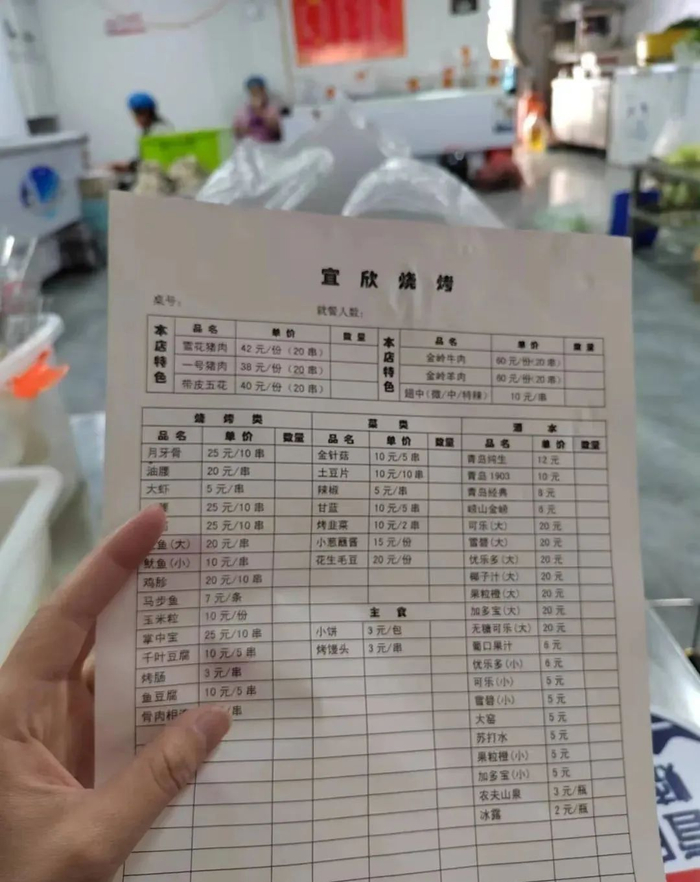 宣欣烧烤
桌号： 就餐人数：
本店特色 品名 单价 数量 本店特色 品名 单价 数量
雪花猪肉 42元/份（20串） 金岭牛肉 60元/份(20串)
一号猪肉 38元/份（20串） 金岭羊肉 60元/份(20串)
带皮五花 40元/份（20串） 翅中(微/中/特辣) 10元/串
烧烤类 菜类 酒水
品名 单价 数量 品名 单价 数量 品名 单价 数量
月牙骨 25元/10串 金针菇 10元/5串 青岛纯生 12元
油腰 20元/串 土豆片 10元/10串 青岛1903 10元
大虾 5元/串 辣椒 5元/串 青岛经典 8元
25元/10串 甘蓝 10元/5串 崂山金崂 6元
25元/10串 烤韭菜 10元/2串 可乐(大) 20元
鱼(大) 20元/串 小葱蘸酱 15元/份 雪碧(大) 20元
鱿鱼(小) 10元/串 花生毛豆 20元/份 优乐多(大) 20元
鸡胗 20元/10串 椰子汁(大) 20元
马步鱼 7元/条 果粒橙(大) 20元
玉米粒 10元/份 主食 加多宝(大) 20元
掌中宝 25元/10串 小饼 3元/包 无糖可乐(大) 20元
千叶豆腐 10元/5串 烤馒头 3元/串 葡口果汁 8元
烤肠 3元/串 优乐多(小) 6元
鱼豆腐 10元/5串 可乐(小) 5元
骨肉相 串 雪碧(小) 5元
大窑 5元
苏打水 5元
果粒橙(小) 5元
加多宝(小) 5元
农夫山泉 3元/瓶
冰露 2元/瓶